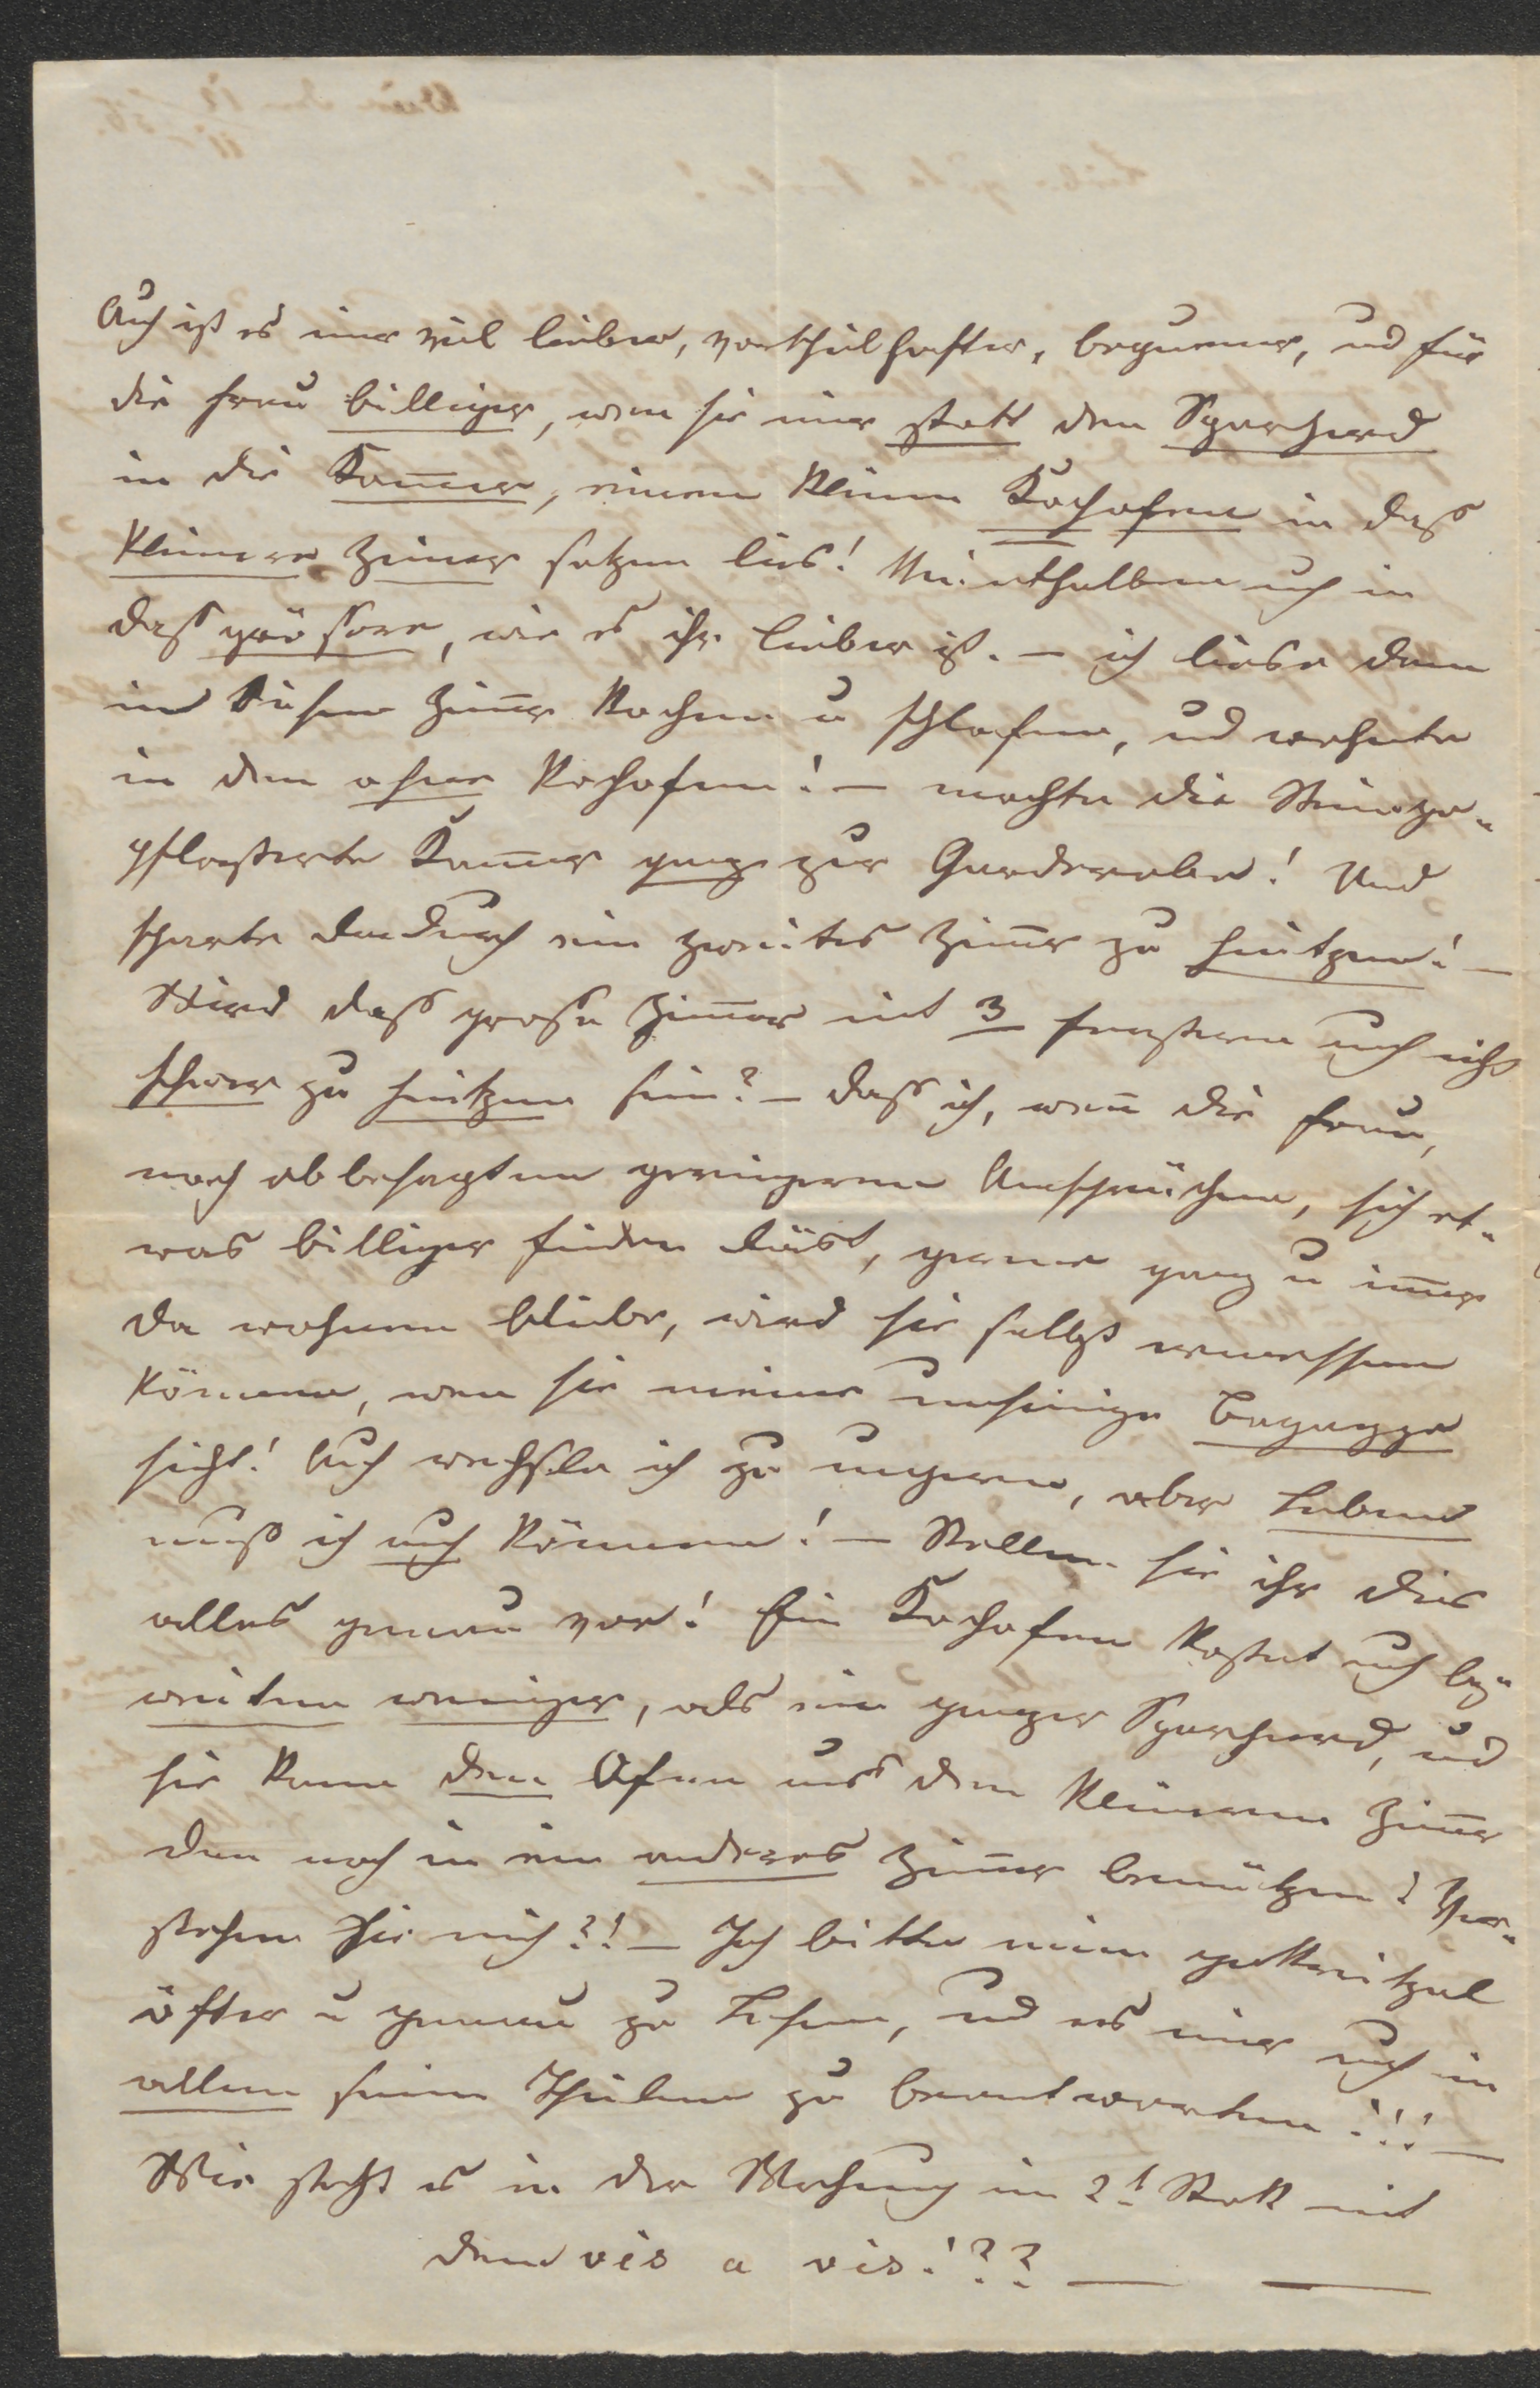 Auch ist es mir viel lieber, vortheilhafter, bequemer, und für
die Frau billiger, wen sie mir statt den Sparherd
in die Kam̅er, einen kleinen Kochofen in daß
kleinere Zimer setzen lies! Meinethalben auch in
daß grössere, wie es ihr lieber ist. – ich liese dann
in diesen Zim̅er kochen u schlafen, und wohnte
in den ohne Kochofen! – machte die Steinge„
pflasterte Kam̅er ganz zur Garderobe! Und
sparte dadurch ein zweites Zim̅er zu heitzen! –
Wird daß grose Zim̅er mit 3 Fenstern auch nicht
schwer zu heitzen sein? – daß ich, wen̅ die Frau,
nach obbesagten geringeren Ansprüchen, sich et„
was billiger finden läst, gerne ganz u im̅er
da wohnen bliebe, wird sie selbst ermessen
können, wen sie meine unsinnige Bagagge
sieht! Auch wechsle ich zu ungern, aber Leben
muß ich auch können! – Stellen Sie ihr dies
alles genau vor! Ein Kochofen kostet auch bey
weiten weniger, als ein ganzer Sparherd, und
sie kann den Ofen aus den kleineren Zim̅er
dan noch in ein anderes Zim̅er benützen! Ver„
stehen Sie mich?! – Ich bitte mein gekreitzel
öfter u genau zu Lesen, und es mir auch in
allen seinen Theilen zu beantworten!!! –
Wie steht es in der Wohnung im 2t Stok mit
dem vis a vis!?? — —